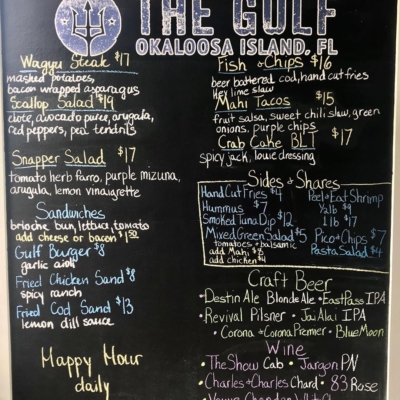 THE GULF
OKALOOSA ISLAND, FL
Wagyu Steak $17
mashed potatoes,
bacon wrapped asparagus
Scallop Salad $19
avocado puree, arugula,
red peppers, pea tendrils
Snapper Salad $17
tomato herb farro, purple mizuna,
arugula, lemon vinaigrette
Sandwiches
brioche bun, lettuce, tomato
add cheese or bacon $1.50
Gulf Burger $8
garlic aioli
Fried Chicken Sand $8
spicy ranch
Fried Cod Sand $13
lemon dill sauce
Happy Hour
daily
Fish + Chips $16
beer battered cod, hand cut fries
key lime slaw
Mahi Tacos $15
fruit salsa, sweet chili, slaw, green
onions, purple chips
Crab Cake BLT $17
spicy jack, louie dressing
Sides + Shares
Hand Cut Fries $4
Hummus $7
Smoked Tuna Dip $12
Mixed Green Salad $5
tomatoes + balsamic
add Mahi $8
add chicken $4
Peel + Eat Shrimp
1/2 lb $9
1 lb $17
Pico + Chips $7
Pasta Salad $4
Craft Beer
• Destin Ale Blonde Ale • East Pass IPA
• Revival Pilsner • Jai Alai IPA
• Corona + Corona Premier • Blue Moon
Wine
• The Show Cab • Jargon PN
• Charles + Charles Chard • 83 Rose